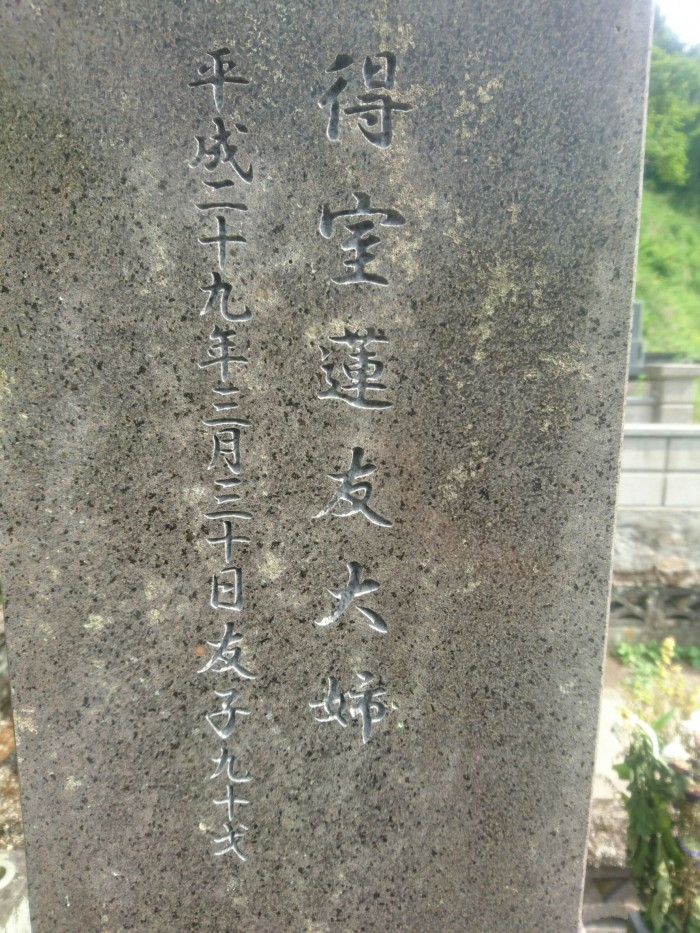 得室蓮友大姉
平成二十九年三月三十日友子九十才